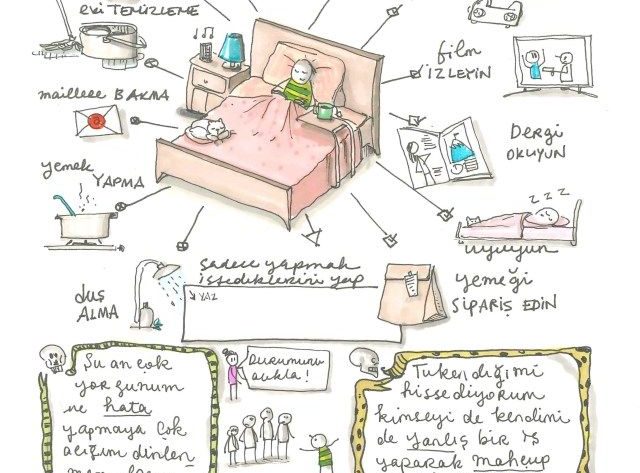 evi TEMİZLEME
maillere BAKMA
yemek
YAPMA
duş
ALMA
film
İZLEYİN
DERGİ
OKUYUN
zzz
uyuyun
yemeği
SİPARİŞ EDİN
sadece yapmak
istediklerini yap
YAZ
Şu an çok
yorgunum
ve hata
yapmaya çok
açığım dinlen
Durumunu
açıkla!
Tükendiğimi
hissediyorum
kimseyi de kendimi
de yanlış bir iş
yaparak mahcup